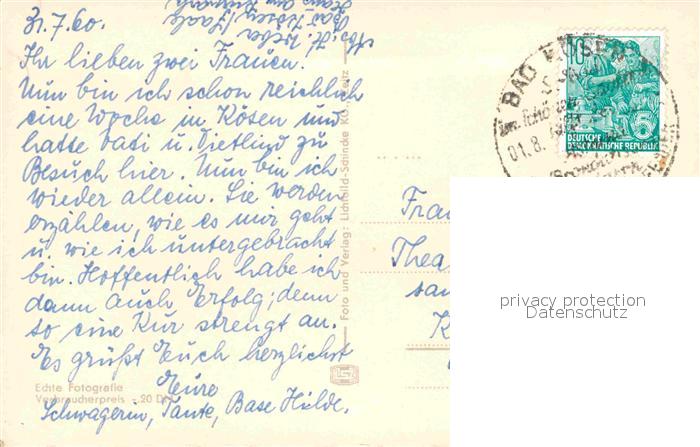 31.7.60.
Ihr lieben zwei Frauen.
Nun bin ich schon reichlich
eine Woche in Kösen und
hatte Vati u. Dietlind zu
Besuch hier. Nun bin ich
wieder allein. Sie werden
erzählen, wie es mir geht
u. wie ich untergebracht
bin. Hoffentlich habe ich
dann auch Erfolg; denn
so eine Kur strengt an.
Es grüßt Euch herzlichst
Eure
Schwägerin, Tante, Base Hulde.
Echte Fotografie
Verbraucherpreis - 20 DM
Foto und Verlag: Lichtbild-Schincke
BAD KÖSEN
01.8.
10
5
DEUTSCHE
DEMOKRATISCHE REPUBLIK
Frau
Thea
K
privacy protection
Datenschutz